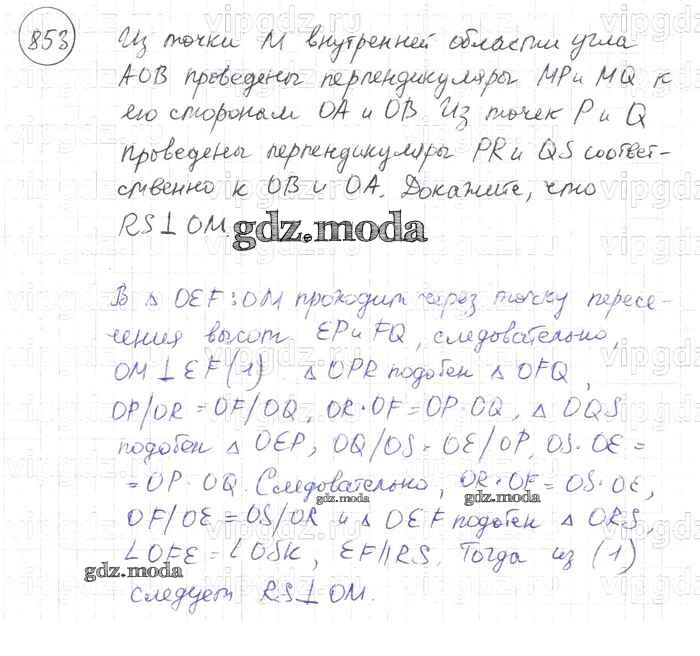 853
Из точки M внутренней области угла
AOB проведены перпендикуляры MP и MQ к
его сторонам OA и OB. Из точек P и Q
проведены перпендикуляры PR и QS соответ-
ственно к OB и OA. Докажите, что
RS⊥OM.
gdz.moda
В △ OEF : OM проходит через точку пересе-
чения высот EP и FQ, следовательно,
OM ⊥ EF (1). △ OPR подобен △ OFQ,
OP/OR = OF/OQ, OR·OF = OP·OQ, △ OQS
подобен △ OEP, OQ/OS = OE/OP, OS·OE =
= OP·OQ. Следовательно, OR·OF = OS·OE,
gdz.moda gdz.moda
OF/OE = OS/OR и △ OEF подобен △ ORS,
∠OFE = ∠OSK, EF∥RS. Тогда из (1)
gdz.moda
следует RS⊥OM.